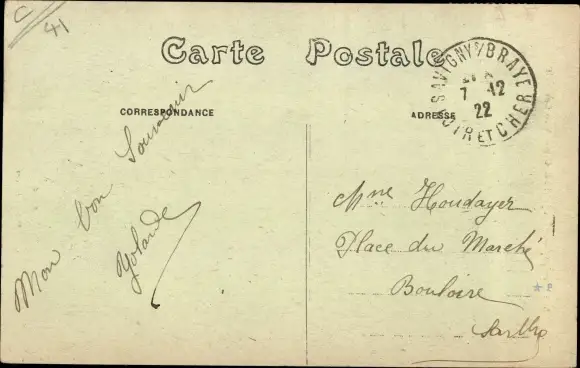 C
41
Carte Postale
CORRESPONDANCE
ADRESSE
SAVIGNY S/ BRAYE
7 -12
22
LOIR ET CHER
Mon bon Souvenir
Yolande
Mme Houdayer
Place du Marché
Bouloire
Sarthe